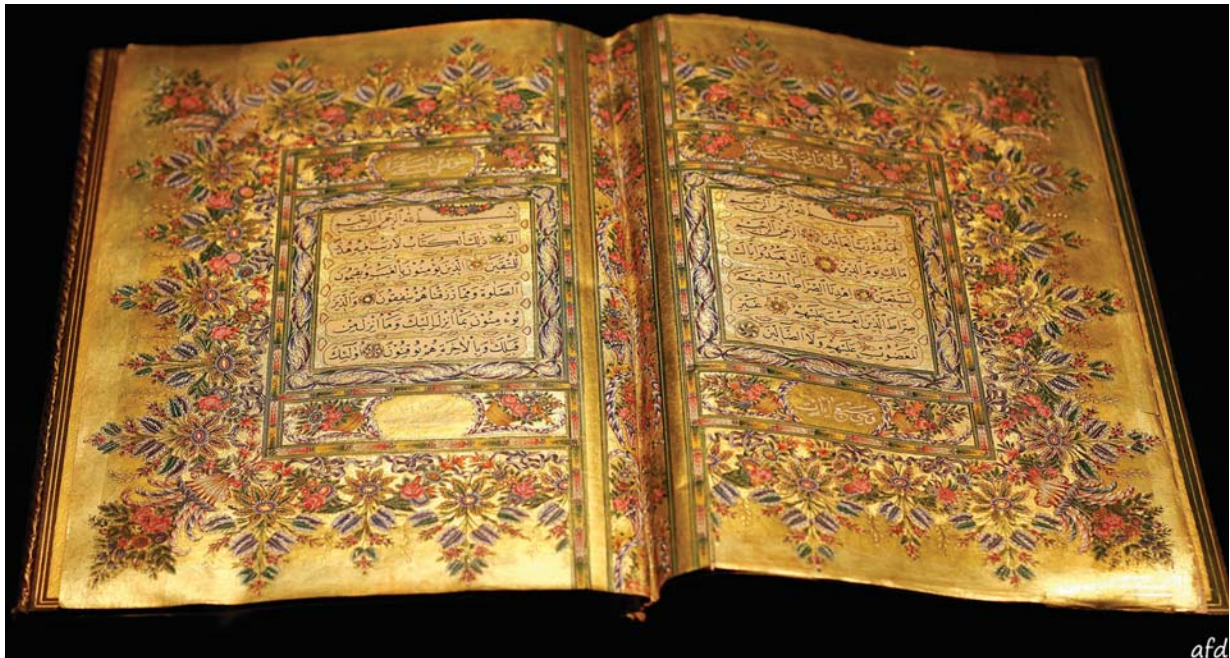 بسم الله الرحمن الرحيم
الحمد لله رب العالمين الرحمن الرحيم
مالك يوم الدين اياك نعبد واياك
نستعين اهدنا الصراط المستقيم
صراط الذين انعمت عليهم غير
المغضوب عليهم ولا الضالين
وهي سبع ايات
بسم الله الرحمن الرحيم
الم ذلك الكتاب لا ريب فيه هدى
للمتقين الذين يؤمنون بالغيب ويقيمون
الصلوة ومما رزقناهم ينفقون والذين
يؤمنون بما انزل اليك وما انزل من
قبلك وبالاخرة هم يوقنون اولئك
afd